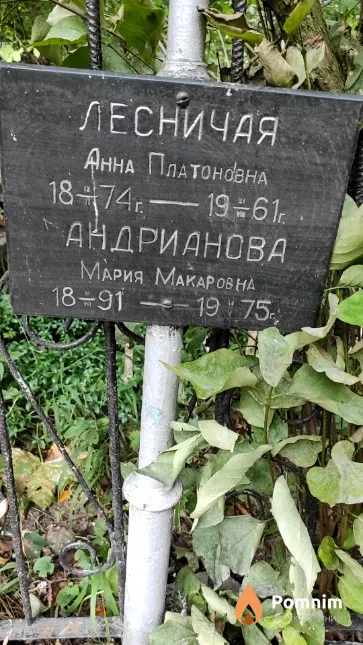 ЛЕСНИЧАЯ
Анна Платоновна
1874г. — 1961г.
АНДРИАНОВА
Мария Макаровна
1891 — 1975г.
Pomnim